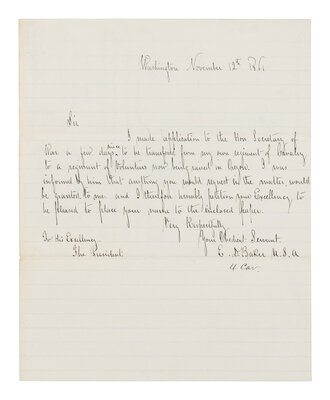 Washington November 12th 1861
Sir
I made application to the Hon. Secretary of
War a few days since to be transfered from my own regiment of Cavalry
to a regiment of Volunteers now being raised in Oregon. I was
informed by him that anything you would request in the matter would
be granted to me. and I therefore humbly petition your Excellency to
be pleased to place your name to the enclosed paper.
Very Respectfully
Your Obedient Servant
E. D. Baker U.S.A
4 Cav.
To His Excellency
The President